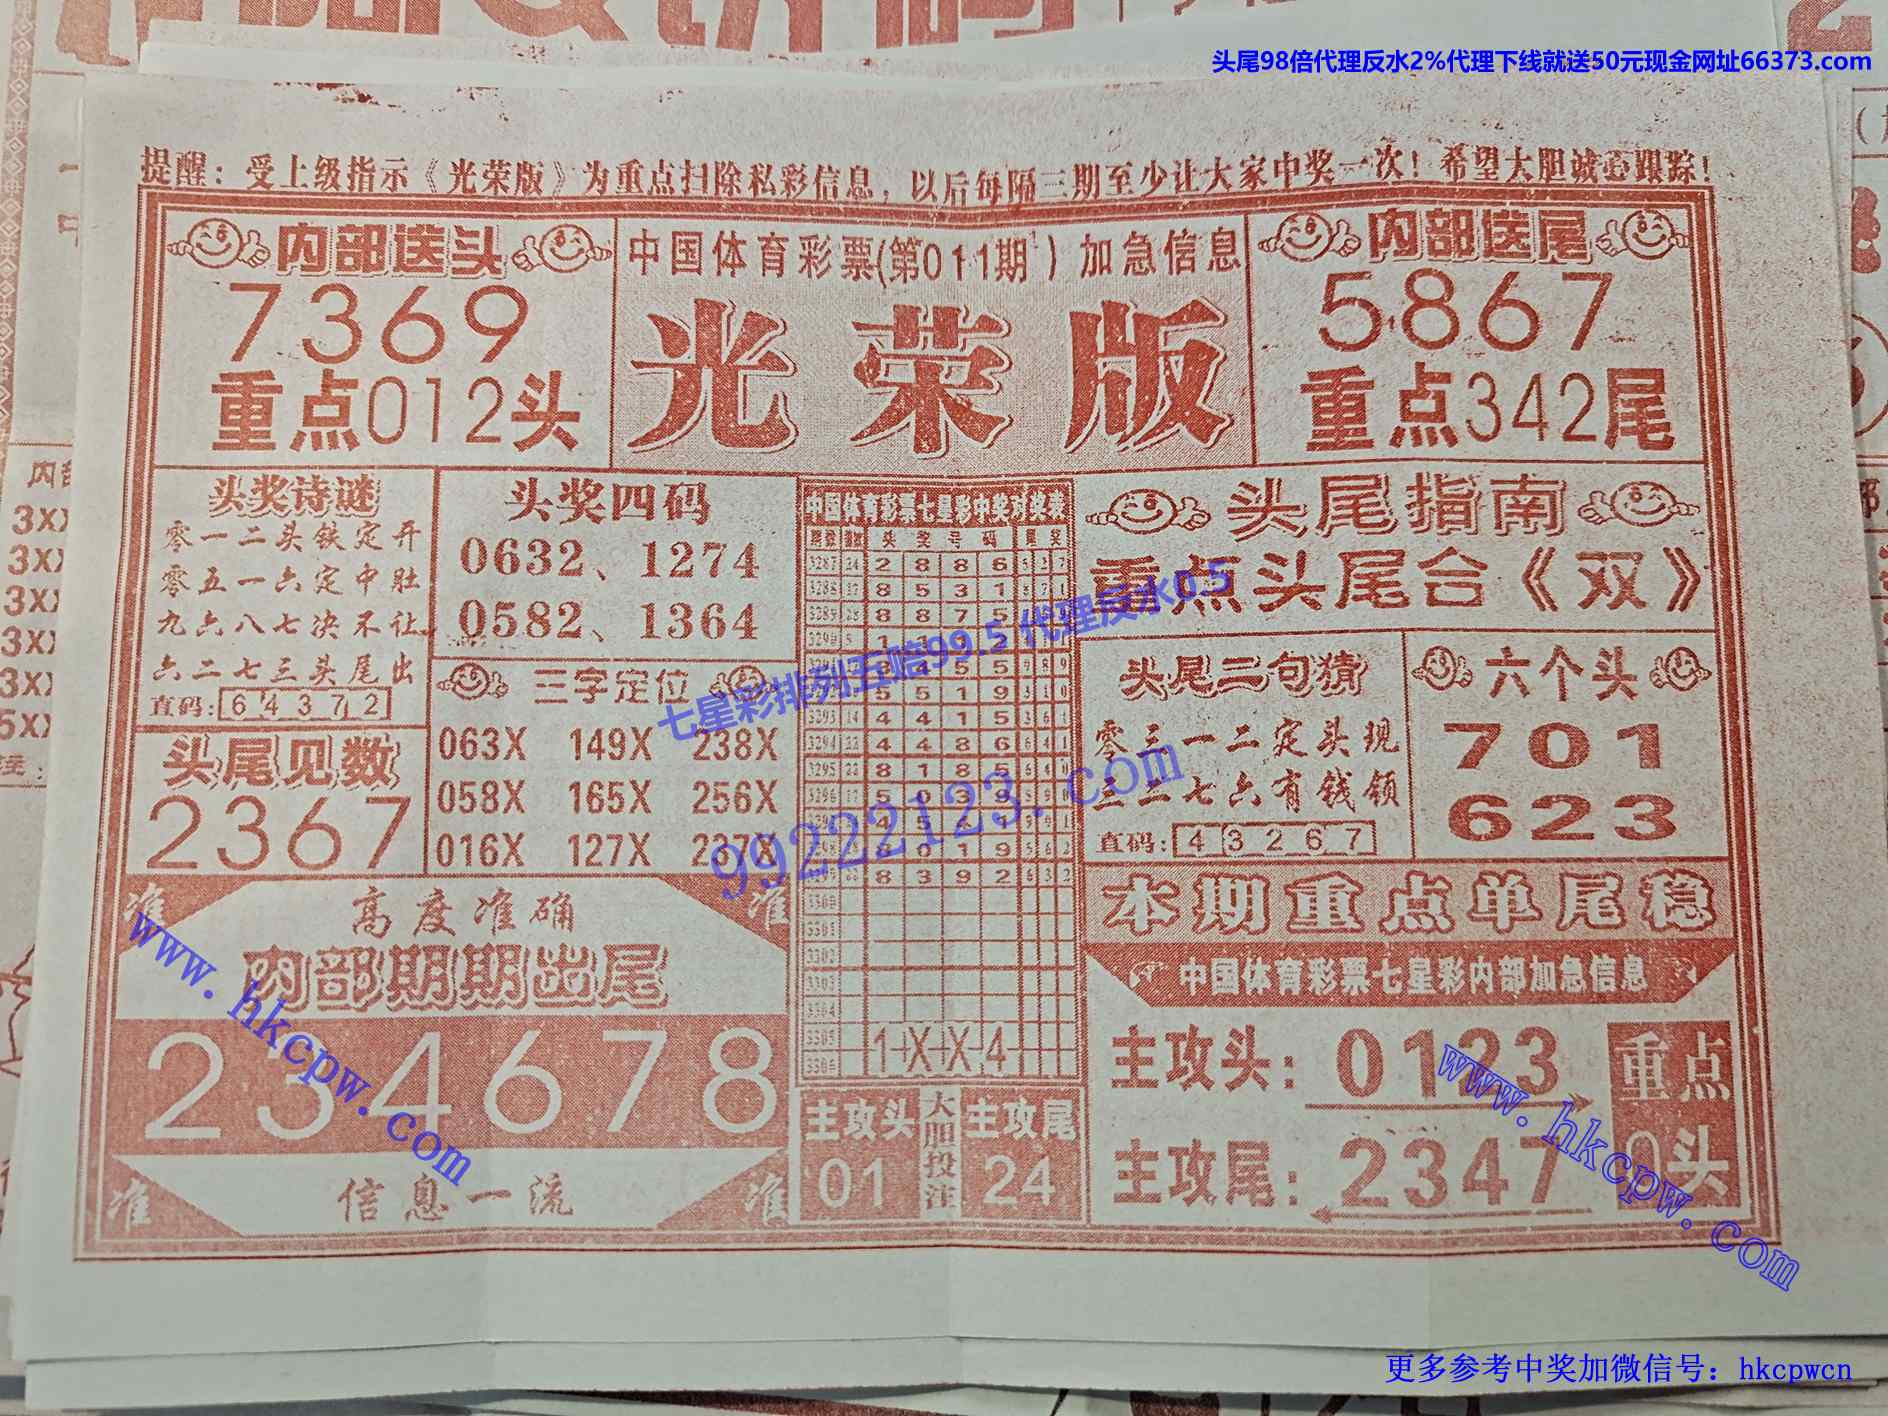 头尾98倍代理反水2%代理下线就送50元现金网址66373.com
提醒：受上级指示《光荣版》为重点扫除私彩信息，以后每隔三期至少让大家中奖一次！希望大胆诚心跟踪！
内部送头
7369
重点012头
中国体育彩票(第011期)加急信息
光荣版
内部送尾
5867
重点342尾
头奖诗谜
零一二头铁定开
零五一六定中肚
九六八七决不让
六二七三头尾出
直码：64372
头尾见数
2367
头奖四码
0632、1274
0582、1364
三字定位
063X 149X 238X
058X 165X 256X
016X 127X 237X
中国体育彩票七星彩中奖对奖表
头奖号码 尾奖
3287 24 2 8 8 6 5 2 7
3288 8 5 3 1
3289 8 8 7 5
3293 14 4 4 1 5 3 6 1
3294 22 4 4 8 6 6 4 1
3295 22 8 1 8 5 6 4 0
3296 5 0 3 9
8 3 9 2 6 3 2
3300
3301
3302
3303
3304
3305
3306
1XX4
主攻头
01
大胆投注
主攻尾
24
头尾指南
重点头尾合《双》
头尾二句猜
零三一二定头现
三二七六有钱领
直码：43267
六个头
701
623
本期重点单尾稳
中国体育彩票七星彩内部加急信息
主攻头：0123
主攻尾：2347
重点
0头
准
准
高度准确
内部期期出尾
234678
准
信息一流
准
七星彩排列五赔99.5 代理反水0.5
99222123.com
www.hkcpw.com
www.hkcpw.com
更多参考中奖加微信号：hkcpwcn